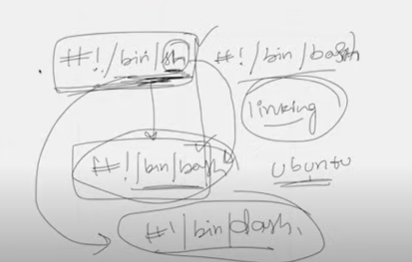 #!/bin/sh #!/bin/bash
linking
#!/bin/bash
ubuntu
#!/bin/dash